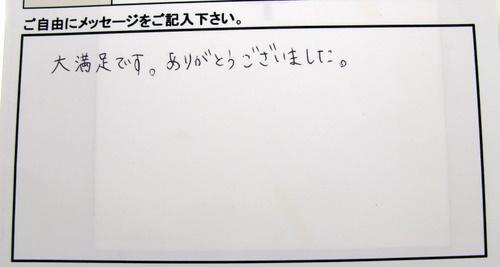 ご自由にメッセージをご記入下さい。
大満足です。ありがとうございました。